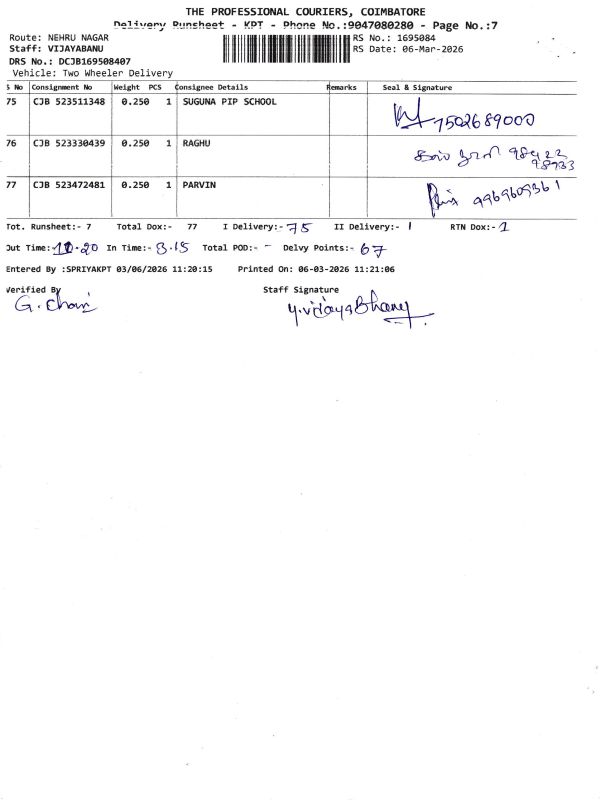 THE PROFESSIONAL COURIERS, COIMBATORE
Delivery Runsheet - KPT - Phone No.:9047080280 - Page No.:7
Route: NEHRU NAGAR
RS No.: 1695084
Staff: VIJAYABANU
RS Date: 06-Mar-2026
DRS No.: DCJB169508407
Vehicle: Two Wheeler Delivery
S No Consignment No Weight PCS Consignee Details Remarks Seal & Signature
75 CJB 523511348 0.250 1 SUGUNA PIP SCHOOL 7502689000
76 CJB 523330439 0.250 1 RAGHU
77 CJB 523472481 0.250 1 PARVIN 9969609361
Tot. Runsheet:- 7 Total Dox:- 77 I Delivery:- 75 II Delivery:- 1 RTN Dox:- 1
Out Time:- 10.20 In Time:- 3.15 Total POD:- - Delvy Points:- 67
Entered By :SPRIYAKPT 03/06/2026 11:20:15 Printed On: 06-03-2026 11:21:06
Verified By Staff Signature